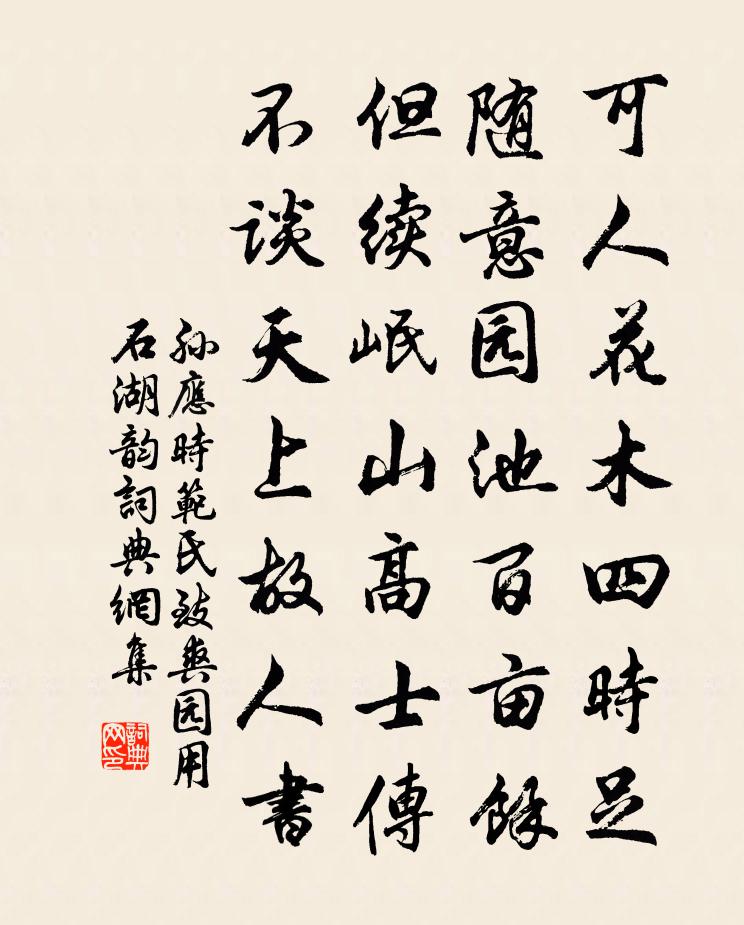 可人花木四時足
随意园池百亩餘
但续岷山高士傳
不谈天上故人書
孙應時範氏致爽园用
石湖韵詞典網集
詞典网印